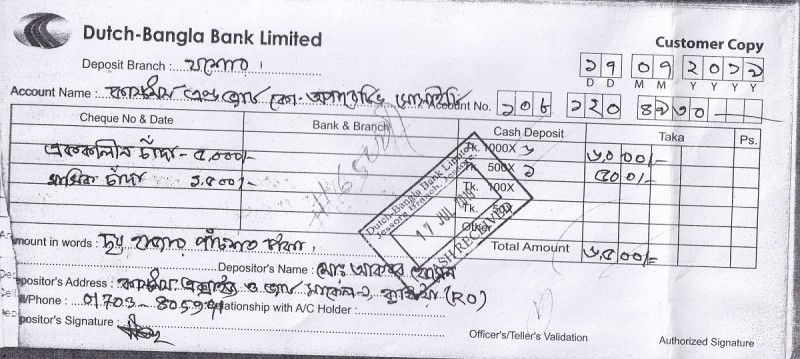 Dutch-Bangla Bank Limited
Customer Copy
Deposit Branch : যশোর ।
১৭ ০৭ ২০১১
D D M M Y Y Y Y
Account Name : কাস্টমস এন্ড ভ্যাট কো-অপারেটিভ সোসাইটি Account No. ১০৮ ১২০
Cheque No & Date Bank & Branch Cash Deposit Taka Ps.
এককালিন চাঁদা- ৫,০০০/- Tk. 1000X ৬ ৬০০০/-
মাসিক চাঁদা ১,৫০০/- Tk. 500X ১ ৫০০/-
Tk. 100X
Tk.
Other
Dutch-Bangla Bank Limited
Jessore Branch, Jessore.
17 JUL
CASH RECEIVED
Total Amount ৬৫০০/-
Amount in words : ছয় হাজার পাঁচশত টাকা ।
Depositor's Name : মোঃ হোসেন
Depositor's Address : কাস্টমস ও ভ্যাট (RO)
/Phone : 01703- Relationship with A/C Holder :
Depositor's Signature :
Officer's/Teller's Validation Authorized Signature